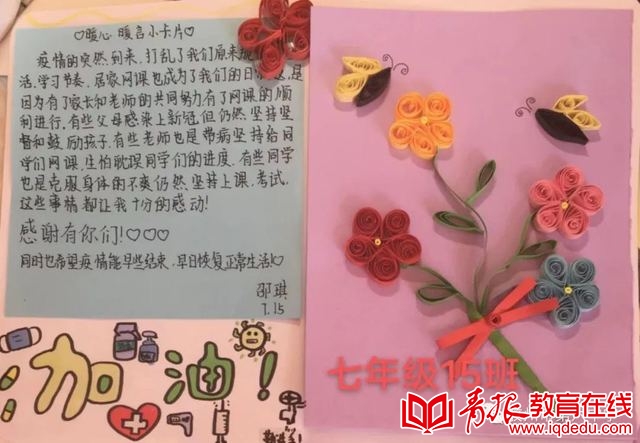 ♡暖心 暖言小卡片♡
疫情的突然到来，打乱了我们原来
活，学习节奏，居家网课也成为了我们的日 是
因为有了家长和老师的共同努力有了网课的顺
利进行，有些父母感染上新冠但仍然坚持坚
督和鼓励孩子，有些老师也是带病坚持给同
学们网课，生怕耽误同学们的进度，有些同学
也是克服身体的不爽仍然坚持上课，考试，
这些事情都让我十分的感动！
感谢有你们！♡♡♡
同时也希望疫情能早些结束，早日恢复正常生活！♡
邵琪
7.15
加油！
七年级15班
青报教育在线
www.lqdedu.com